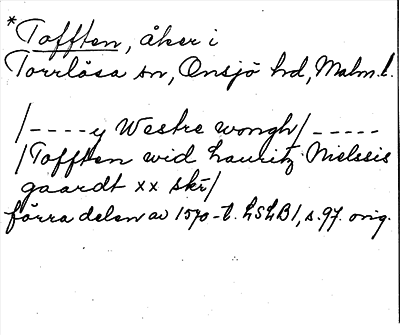 *Tofften, åker i
Torrlösa sn, Onsjö hd, Malm.l.
/----y Westre wongh/-----
/Tofften wid Lauritz Nielssis
gaardt xx skr/
förra delen av 1570-t. LSLB 1, s. 97. orig.